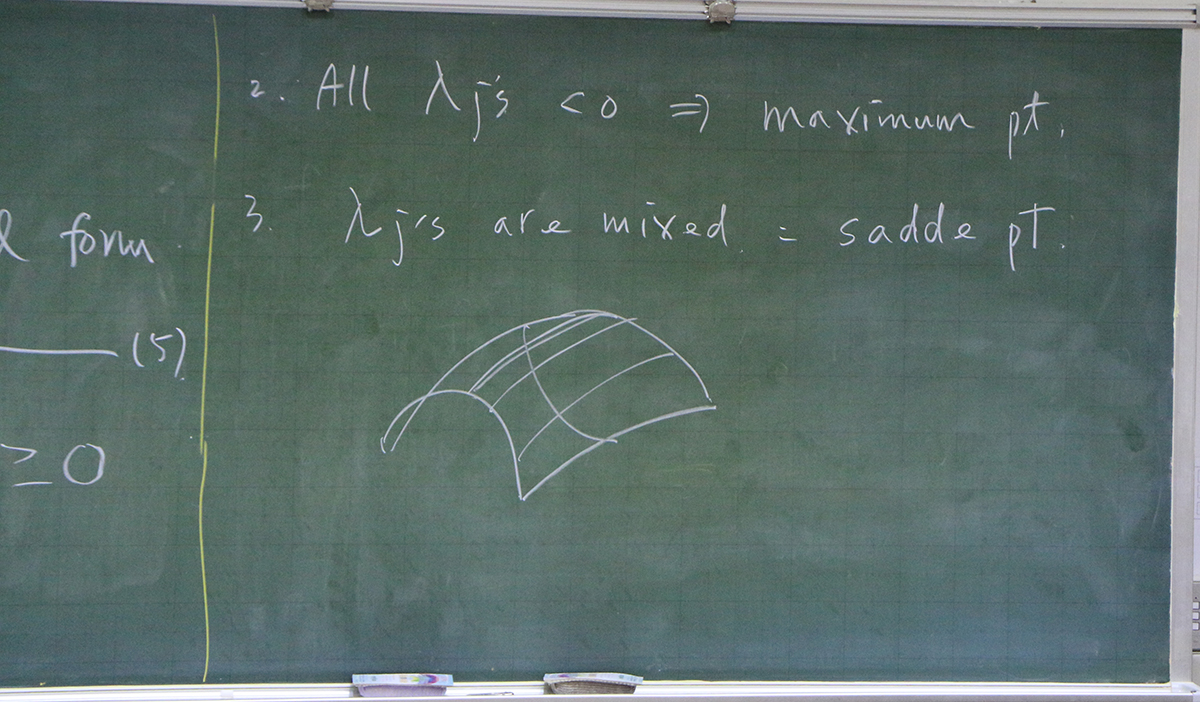 form
(5)
≥0
2. All λj's <0 ⇒ maximum pt.
3. λj's are mixed = sadde pt.